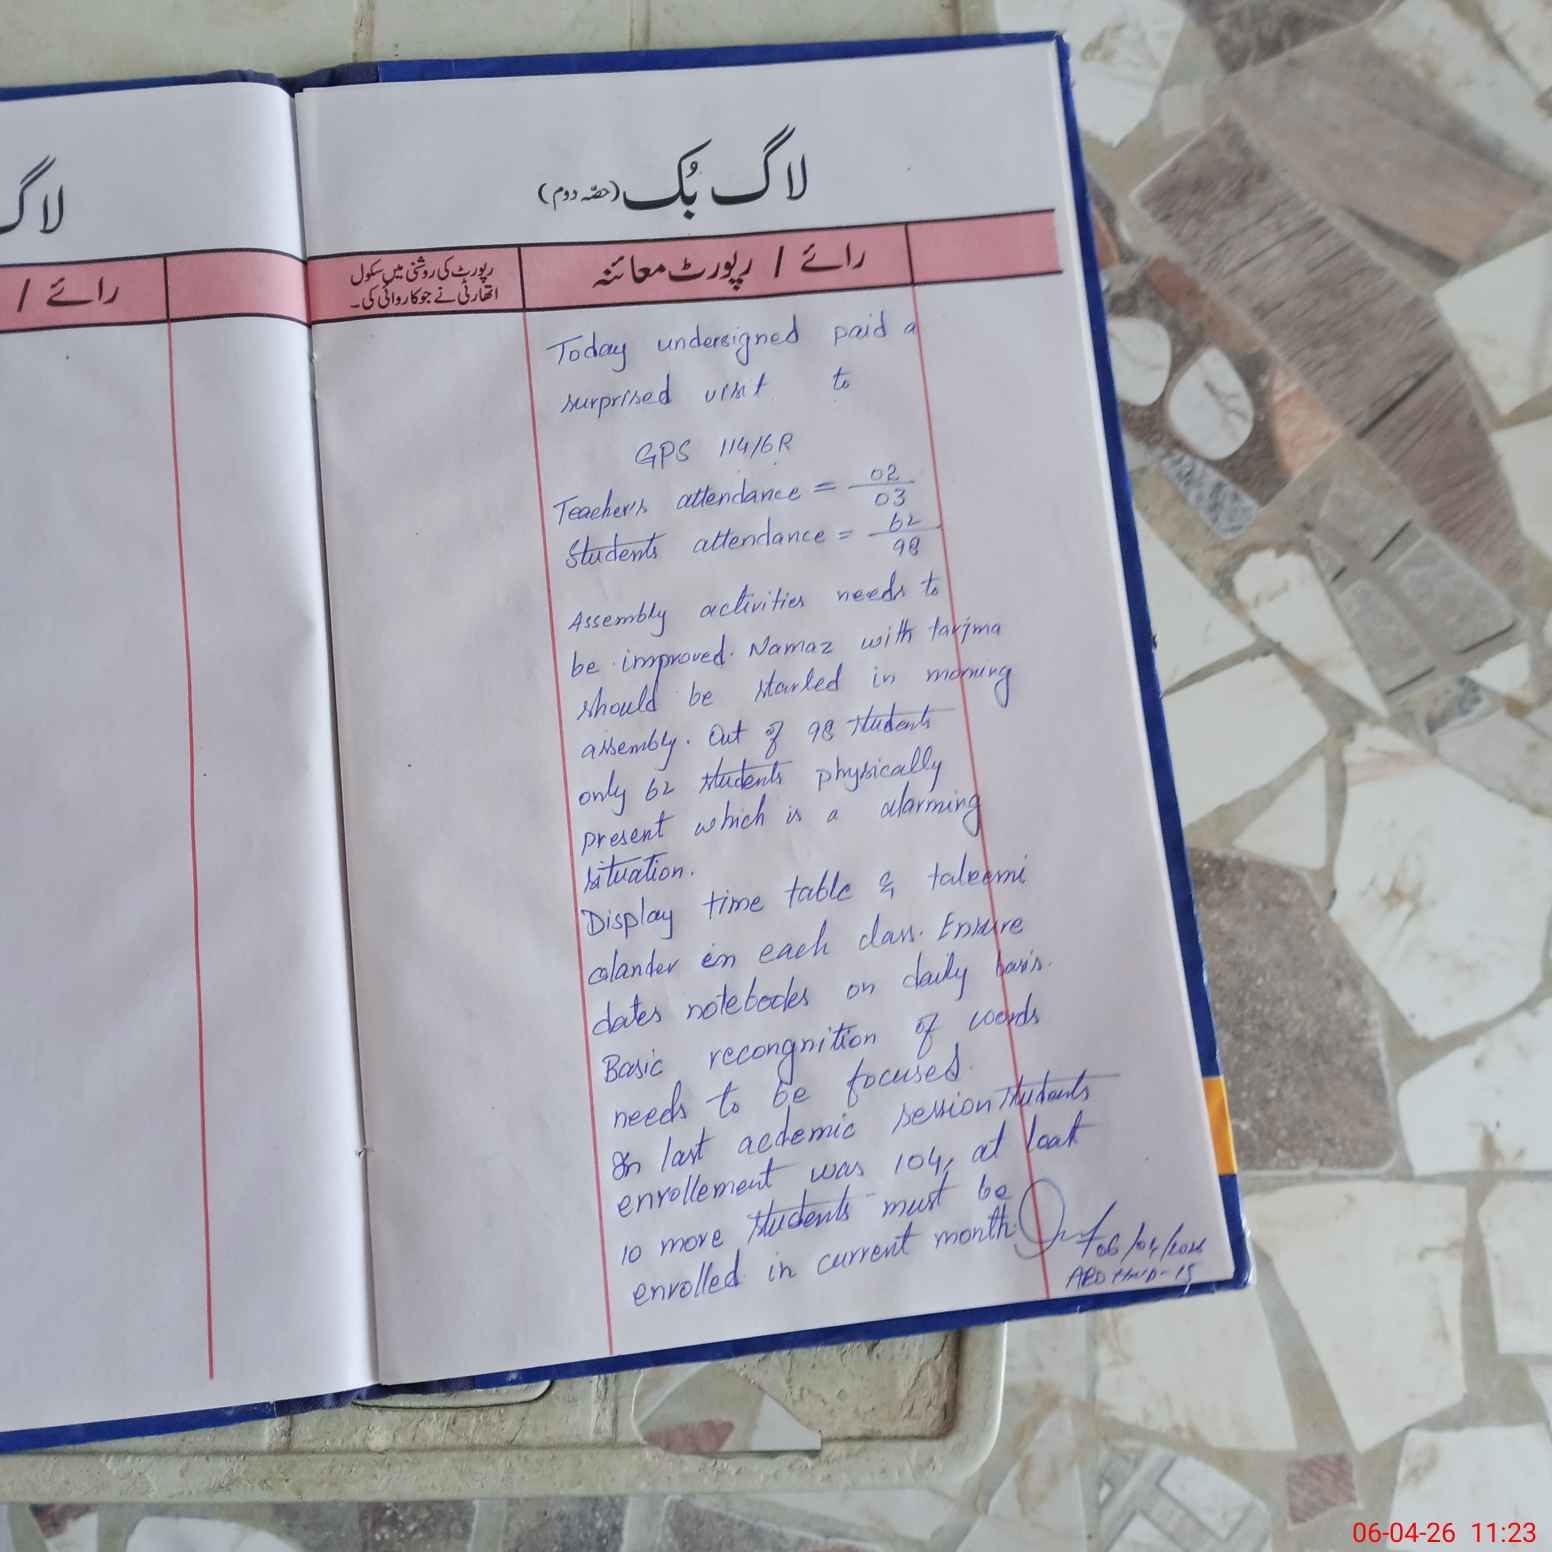 لاگ
رائے /
لاگ بُک (حصّہ دوم)
رائے / رپورٹ معائنہ
رپورٹ کی روشنی میں سکول
اتھارٹی نے جو کاروائی کی۔
Today undersigned paid a
surprised visit to
GPS 114/6R
Teacher's attendance = 02/03
Students attendance = 62/98
Assembly activities needs to
be improved. Namaz with tarjma
should be started in morning
assembly. Out of 98 students
only 62 students physically
present which is a alarming
situation.
Display time table & taleemi
calander in each class. Ensure
dates notebooks on daily basis.
Basic recongnition of words
needs to be focused.
In last acdemic session students
enrollement was 104, at least
10 more students must be
enrolled in current month.
06/04/2026
06-04-26 11:23